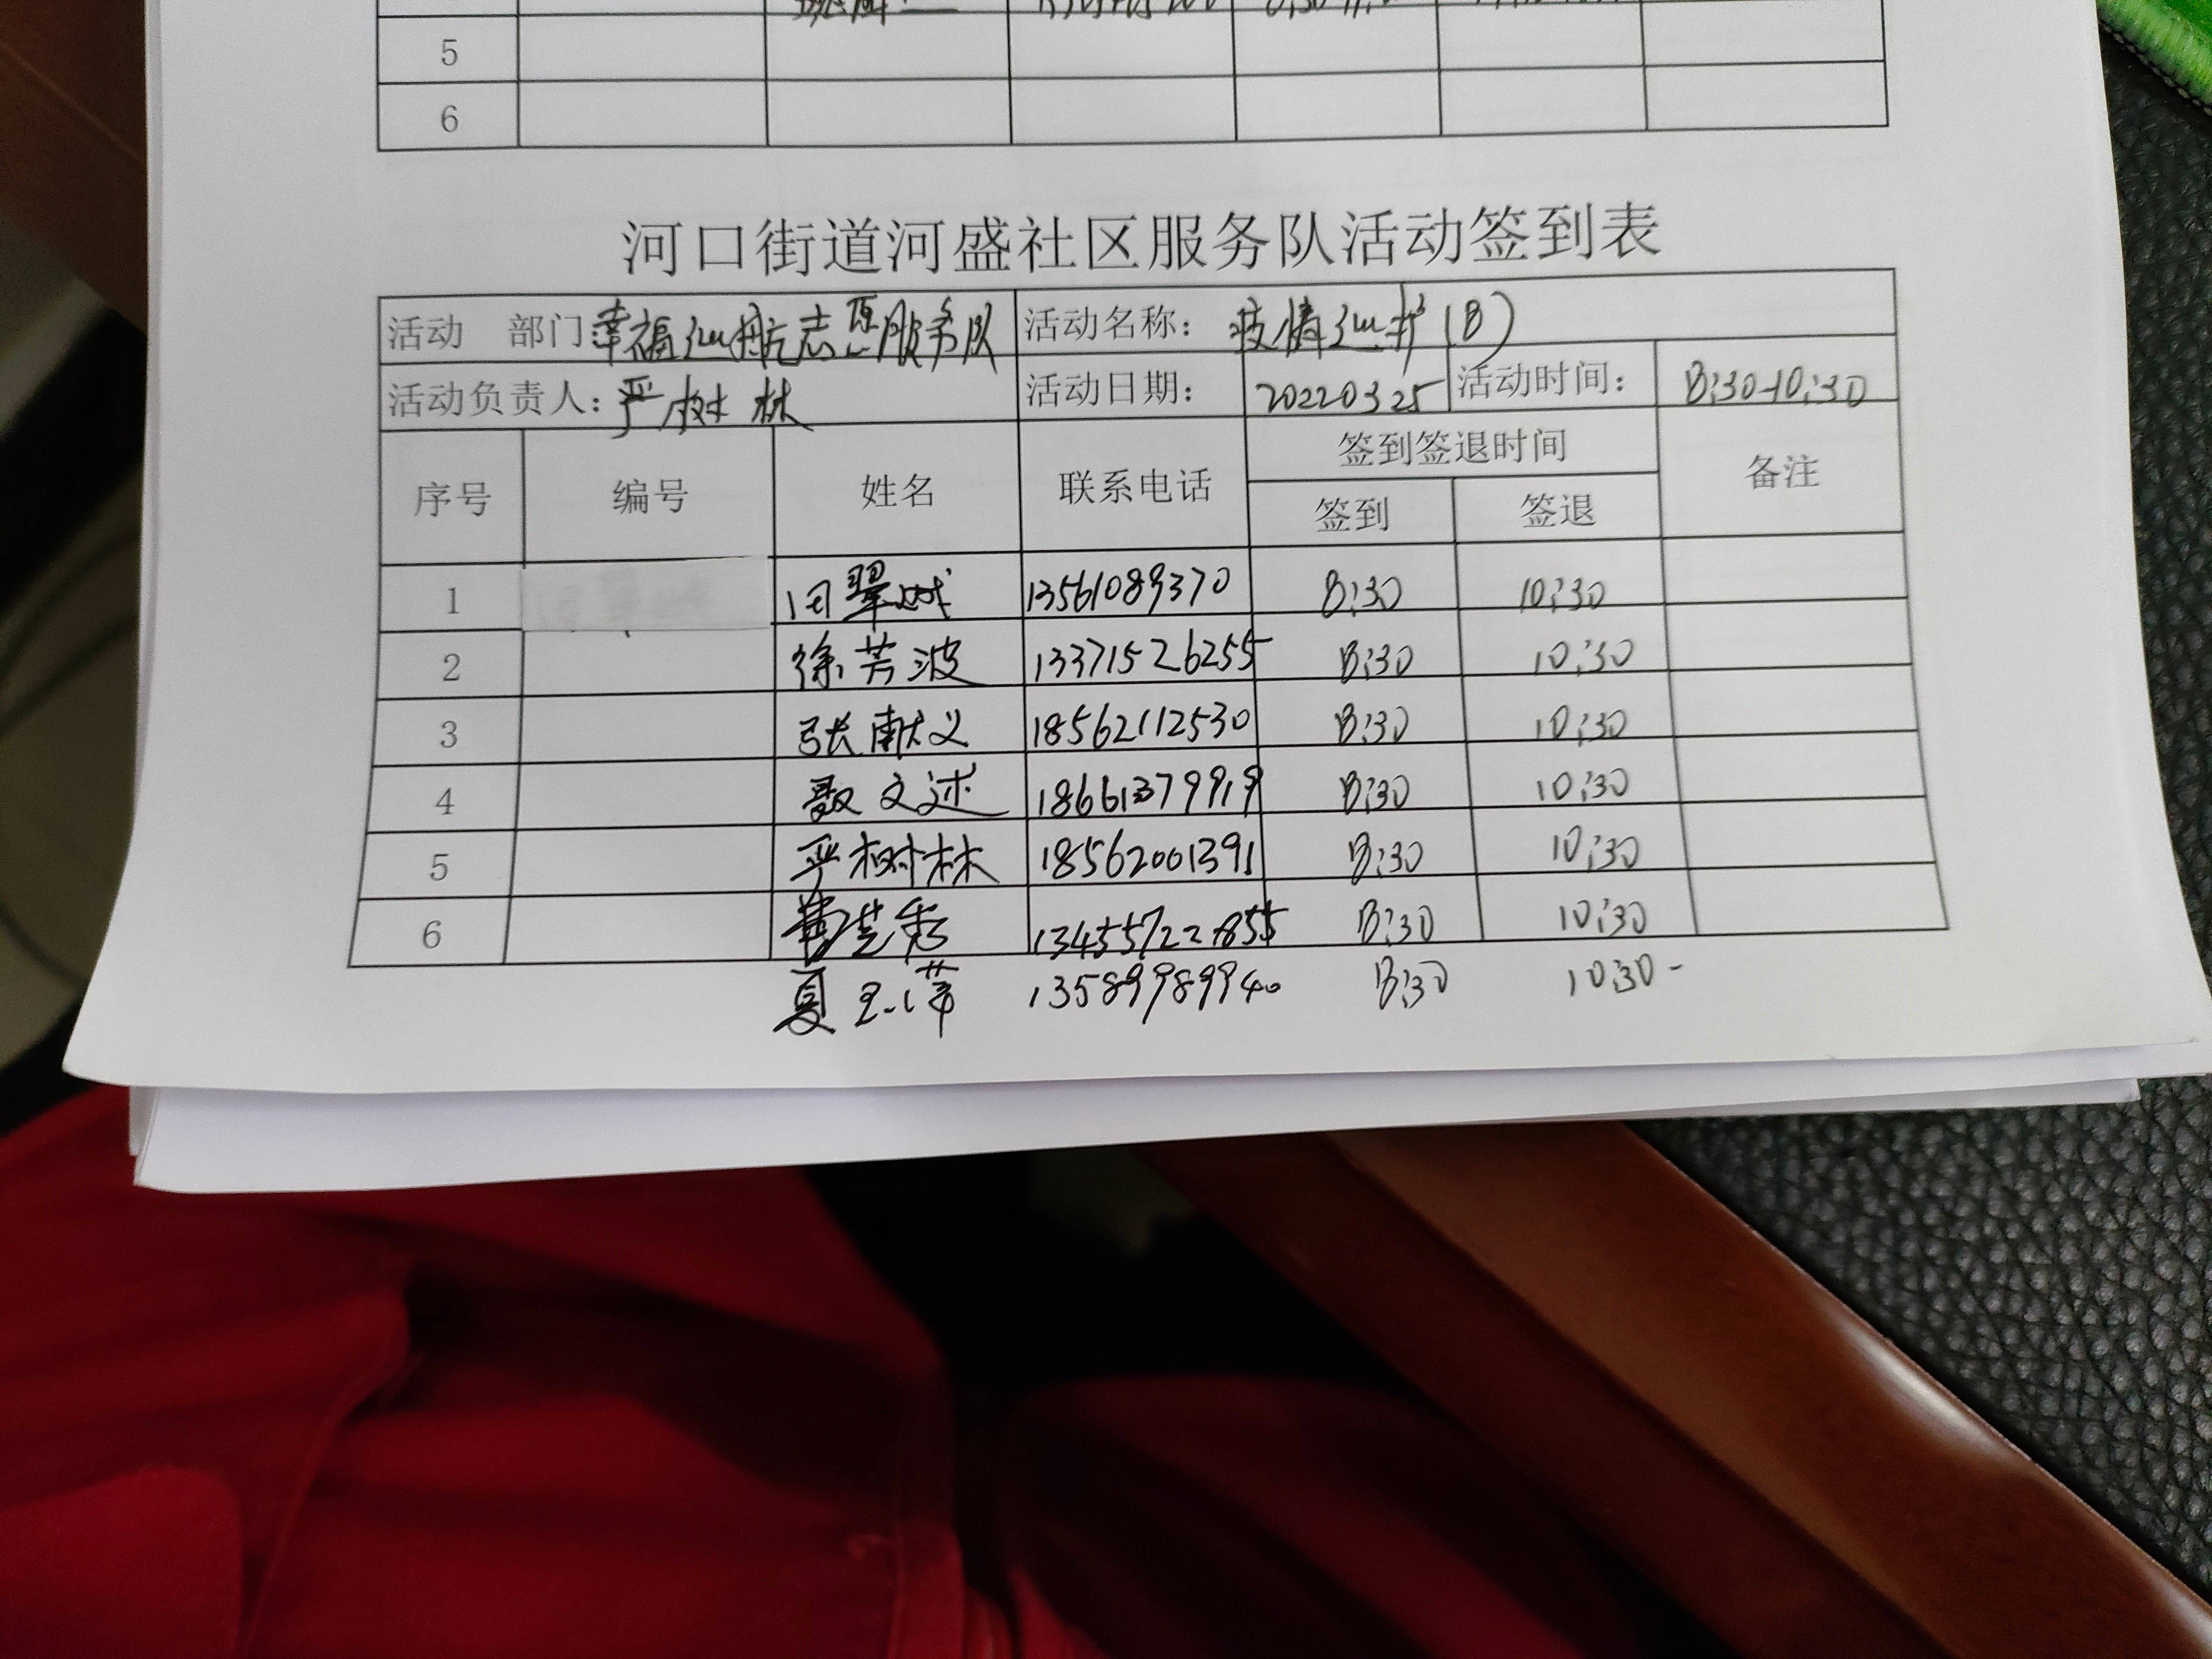 5
6
河口街道河盛社区服务队活动签到表
活动 部门 幸福巡航志愿服务队 活动名称: 疫情巡护(8)
活动负责人: 严树林 活动日期: 20220325 活动时间: 8:30-10:30
序号 编号 姓名 联系电话 签到签退时间 备注
签到 签退
1 13561089370 8:30 10:30
2 徐芳波 13371526255 8:30 10:30
3 张献义 18562112530 8:30 10:30
4 聂文述 18661379919 8:30 10:30
5 严树林 18562001391 8:30 10:30
6 8:30 10:30
夏 13589989940 8:30 10:30-